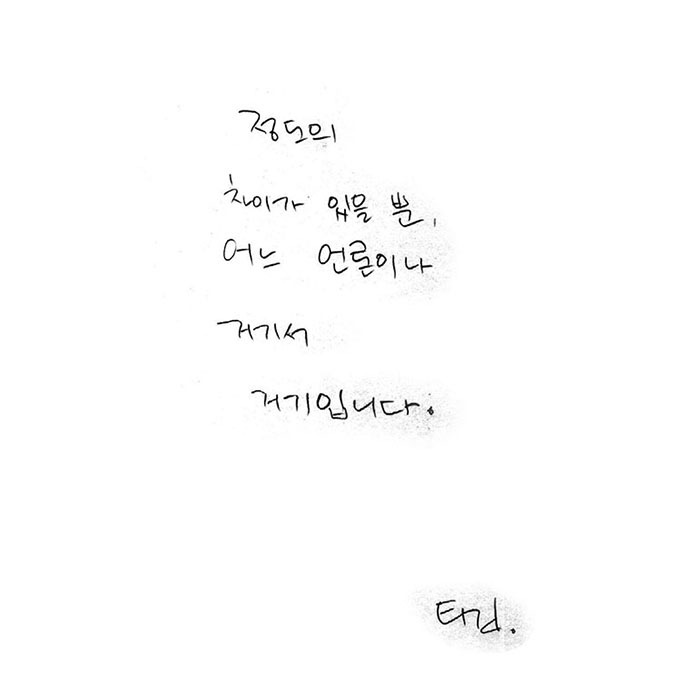 정도의
차이가 있을 뿐,
어느 언론이나
거기서
거기입니다.
타김.